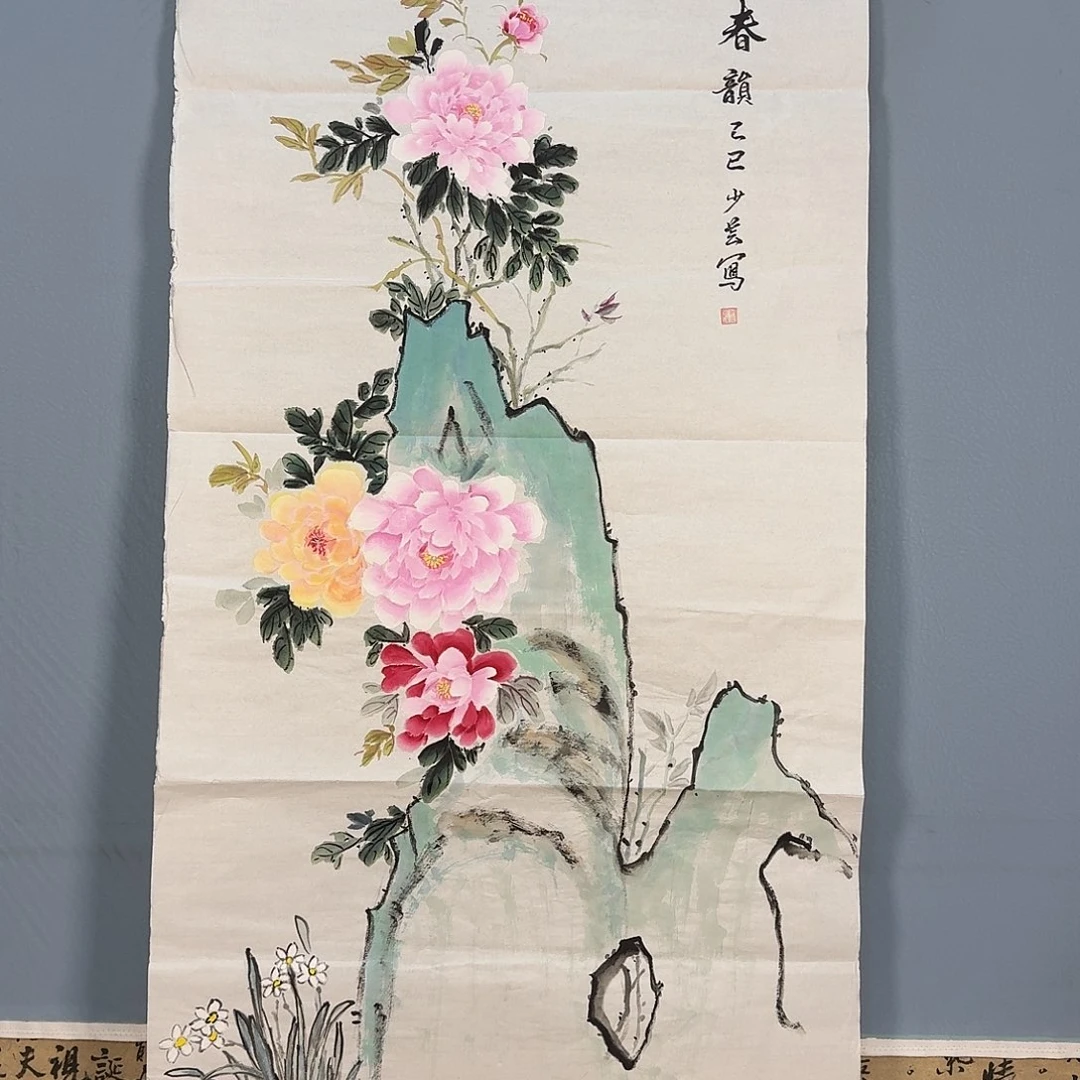 春韻己巳少芸寫
夫
祖
誕